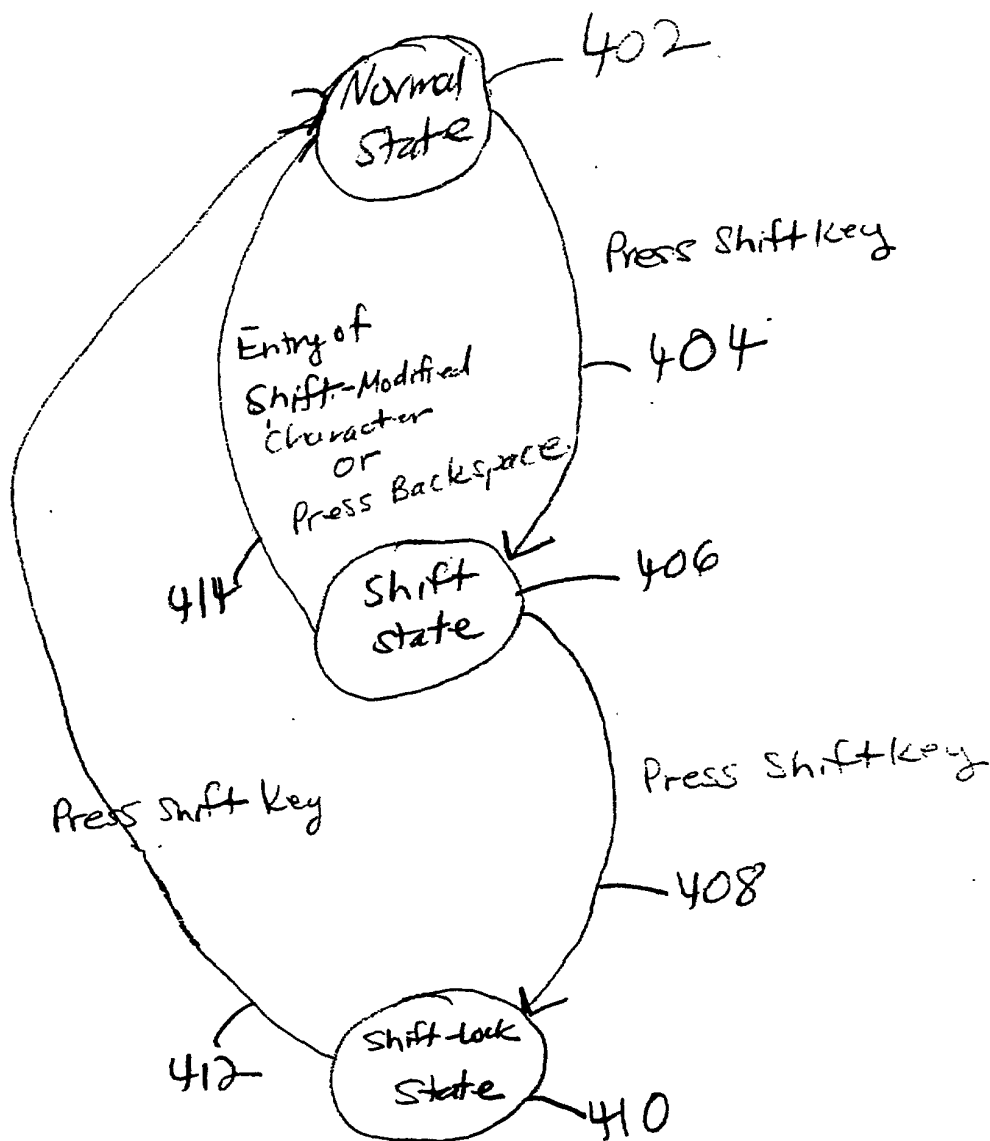 402
Normal
State
Press Shift Key
404
Entry of
Shift-Modified
Character
or
Press Backspace
414
Shift
State
406
Press Shift Key
408
Press Shift Key
412
Shift-Lock
State
410